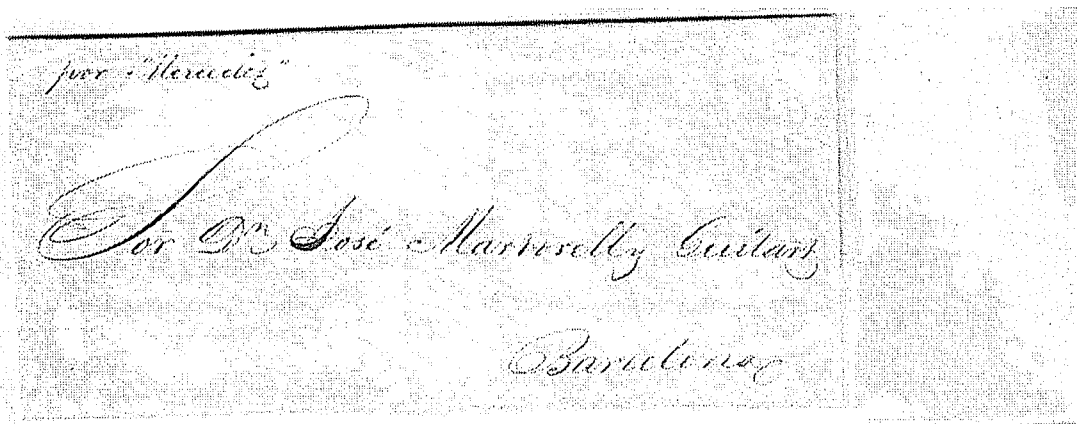 por "Mercedes"
Sor Dn José Martorell y Cuitars
Barcelona